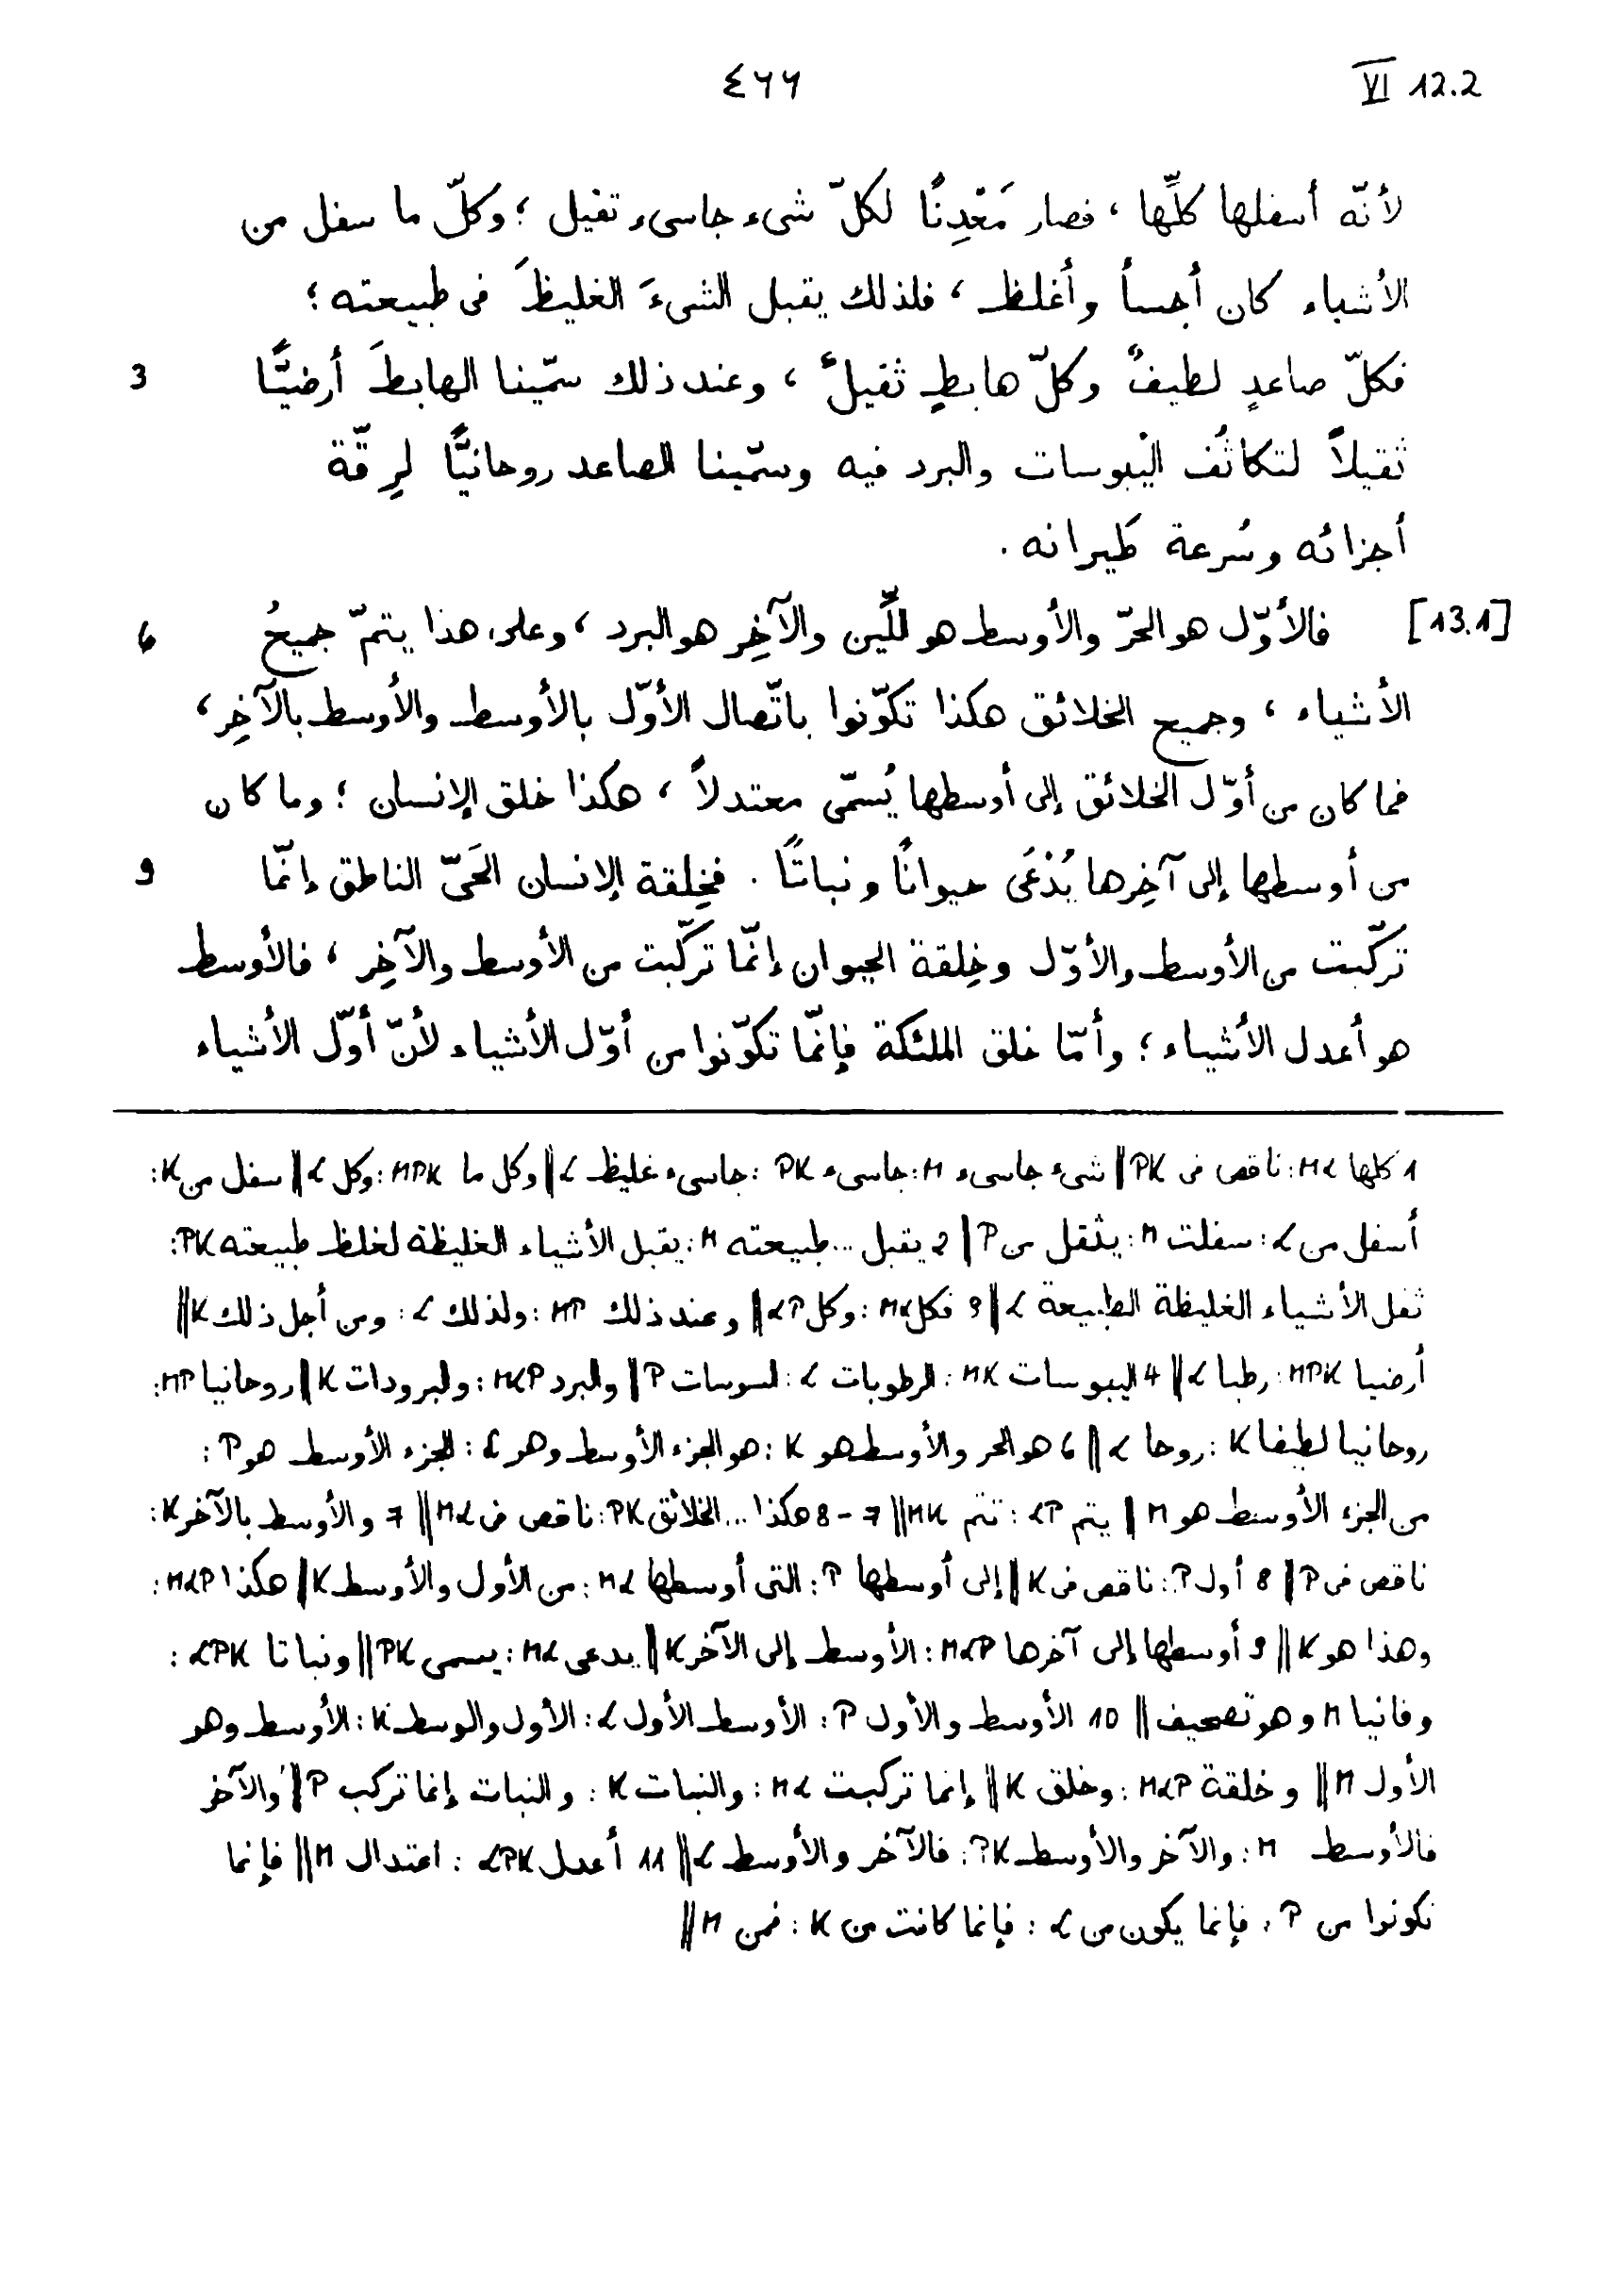 VI 12.2 ٤٦٦
لأنّه أسفلها كلِّها ، فصار مَعْدِنًا لكلّ شىء جاسىء ثقيل ؛ وكلّ ما سفل من
الأشياء كان أجسأ وأغلظ ، فلذلك يقبل الشىءَ الغليظَ فى طبيعته ؛
3 فكلّ صاعدٍ لطيفٌ وكلّ هابطٍ ثقيلٌ ، وعند ذلك سمّينا الهابطَ أرضيًّا
ثقيلاً لتكاثُف اليْبوسات والبرد فيه وسمّينا الصاعد روحانيًّا لرِقّة
أجزائه وسُرعة طَيرانه .
6 [13.1] فالأوّل هو الحرّ والأوسط هو اللِّين والآخِر هو البرد ، وعلى هذا يتمّ جميعُ
الأشياء ، وجميع الخلائق هكذا تكوّنوا باتّصال الأوّل بالأوسط والأوسط بالآخِر ،
فما كان من أوّل الخلائق إلى أوسطها يُسمّى معتدلاً ، هكذا خلق الإنسان ؛ وما كان
9 من أوسطها إلى آخِرها يُدْعَى حيوانًا ونباتًا . فخِلقة الإنسان الحَىّ الناطق إنّما
تركّبت من الأوسط والأوّل وخِلقة الحيوان إنّما تركّبت من الأوسط والآخِر ، فالأوسط
هو أعدل الأشياء ؛ وأمّا خلق الملئكة فإنّما تكوّنوا من أوّل الأشياء لأنّ أوّل الأشياء
1 كلها ML: ناقص فى PK ‖ شىء جاسىء M: جاسىء PK : جاسىء غليظ L ‖ وكل ما MPK: وكل L ‖ سفل من K:
أسفل من L: سفلت M: يثقل من P ‖ 2 يقبل ... طبيعته M: يقبل الأشياء الغليظة لغلظ طبيعته PK:
ثفل الأشياء الغليظة الطبيعة L ‖ 3 فكل ML: وكل LP ‖ وعند ذلك MP: ولذلك L: ومن أجل ذلك K ‖
أرضيا MPK: رطبا L ‖ 4 اليبوسات MK: الرطوبات L: لسوسات P ‖ والبرد MLP: والبرودات K ‖ روحانيا MP:
روحانيا لطيفا K: روحا L ‖ 6 هو الحر والأوسط هو K: هو الجزء الأوسط وهو L: الجزء الأوسط هو P:
من الجزء الأوسط هو M ‖ يتم LP: تتم MK ‖ 7 – 8 هكذا ... الخلائق PK: ناقص فى ML ‖ 7 والأوسط بالآخر K:
ناقص فى P ‖ 8 أول P: ناقص فى K ‖ إلى أوسطها P: التى أوسطها ML: من الأول والأوسط K ‖ هكذا MLP:
وهذا هو K ‖ 9 أوسطها إلى آخرها MLP: الأوسط إلى الآخر K ‖ يدعى ML: يسمى PK ‖ ونباتا LPK:
وفانيا M وهو تصحيف ‖ 10 الأوسط والأول P: الأوسط الأول L: الأول والوسط K: الأوسط وهو
الأول M ‖ وخلقة MLP: وخلق K ‖ إنما تركبت ML: والنبات K: والنبات إنما تركب P ‖ والآخر
فالأوسط M: والآخر والأوسط PK: فالآخر والأوسط L ‖ 11 أعدل LPK: اعتدال M ‖ فإنما
تكونوا من P: فإنما يكون من L: فإنما كانت من K: فمن M ‖